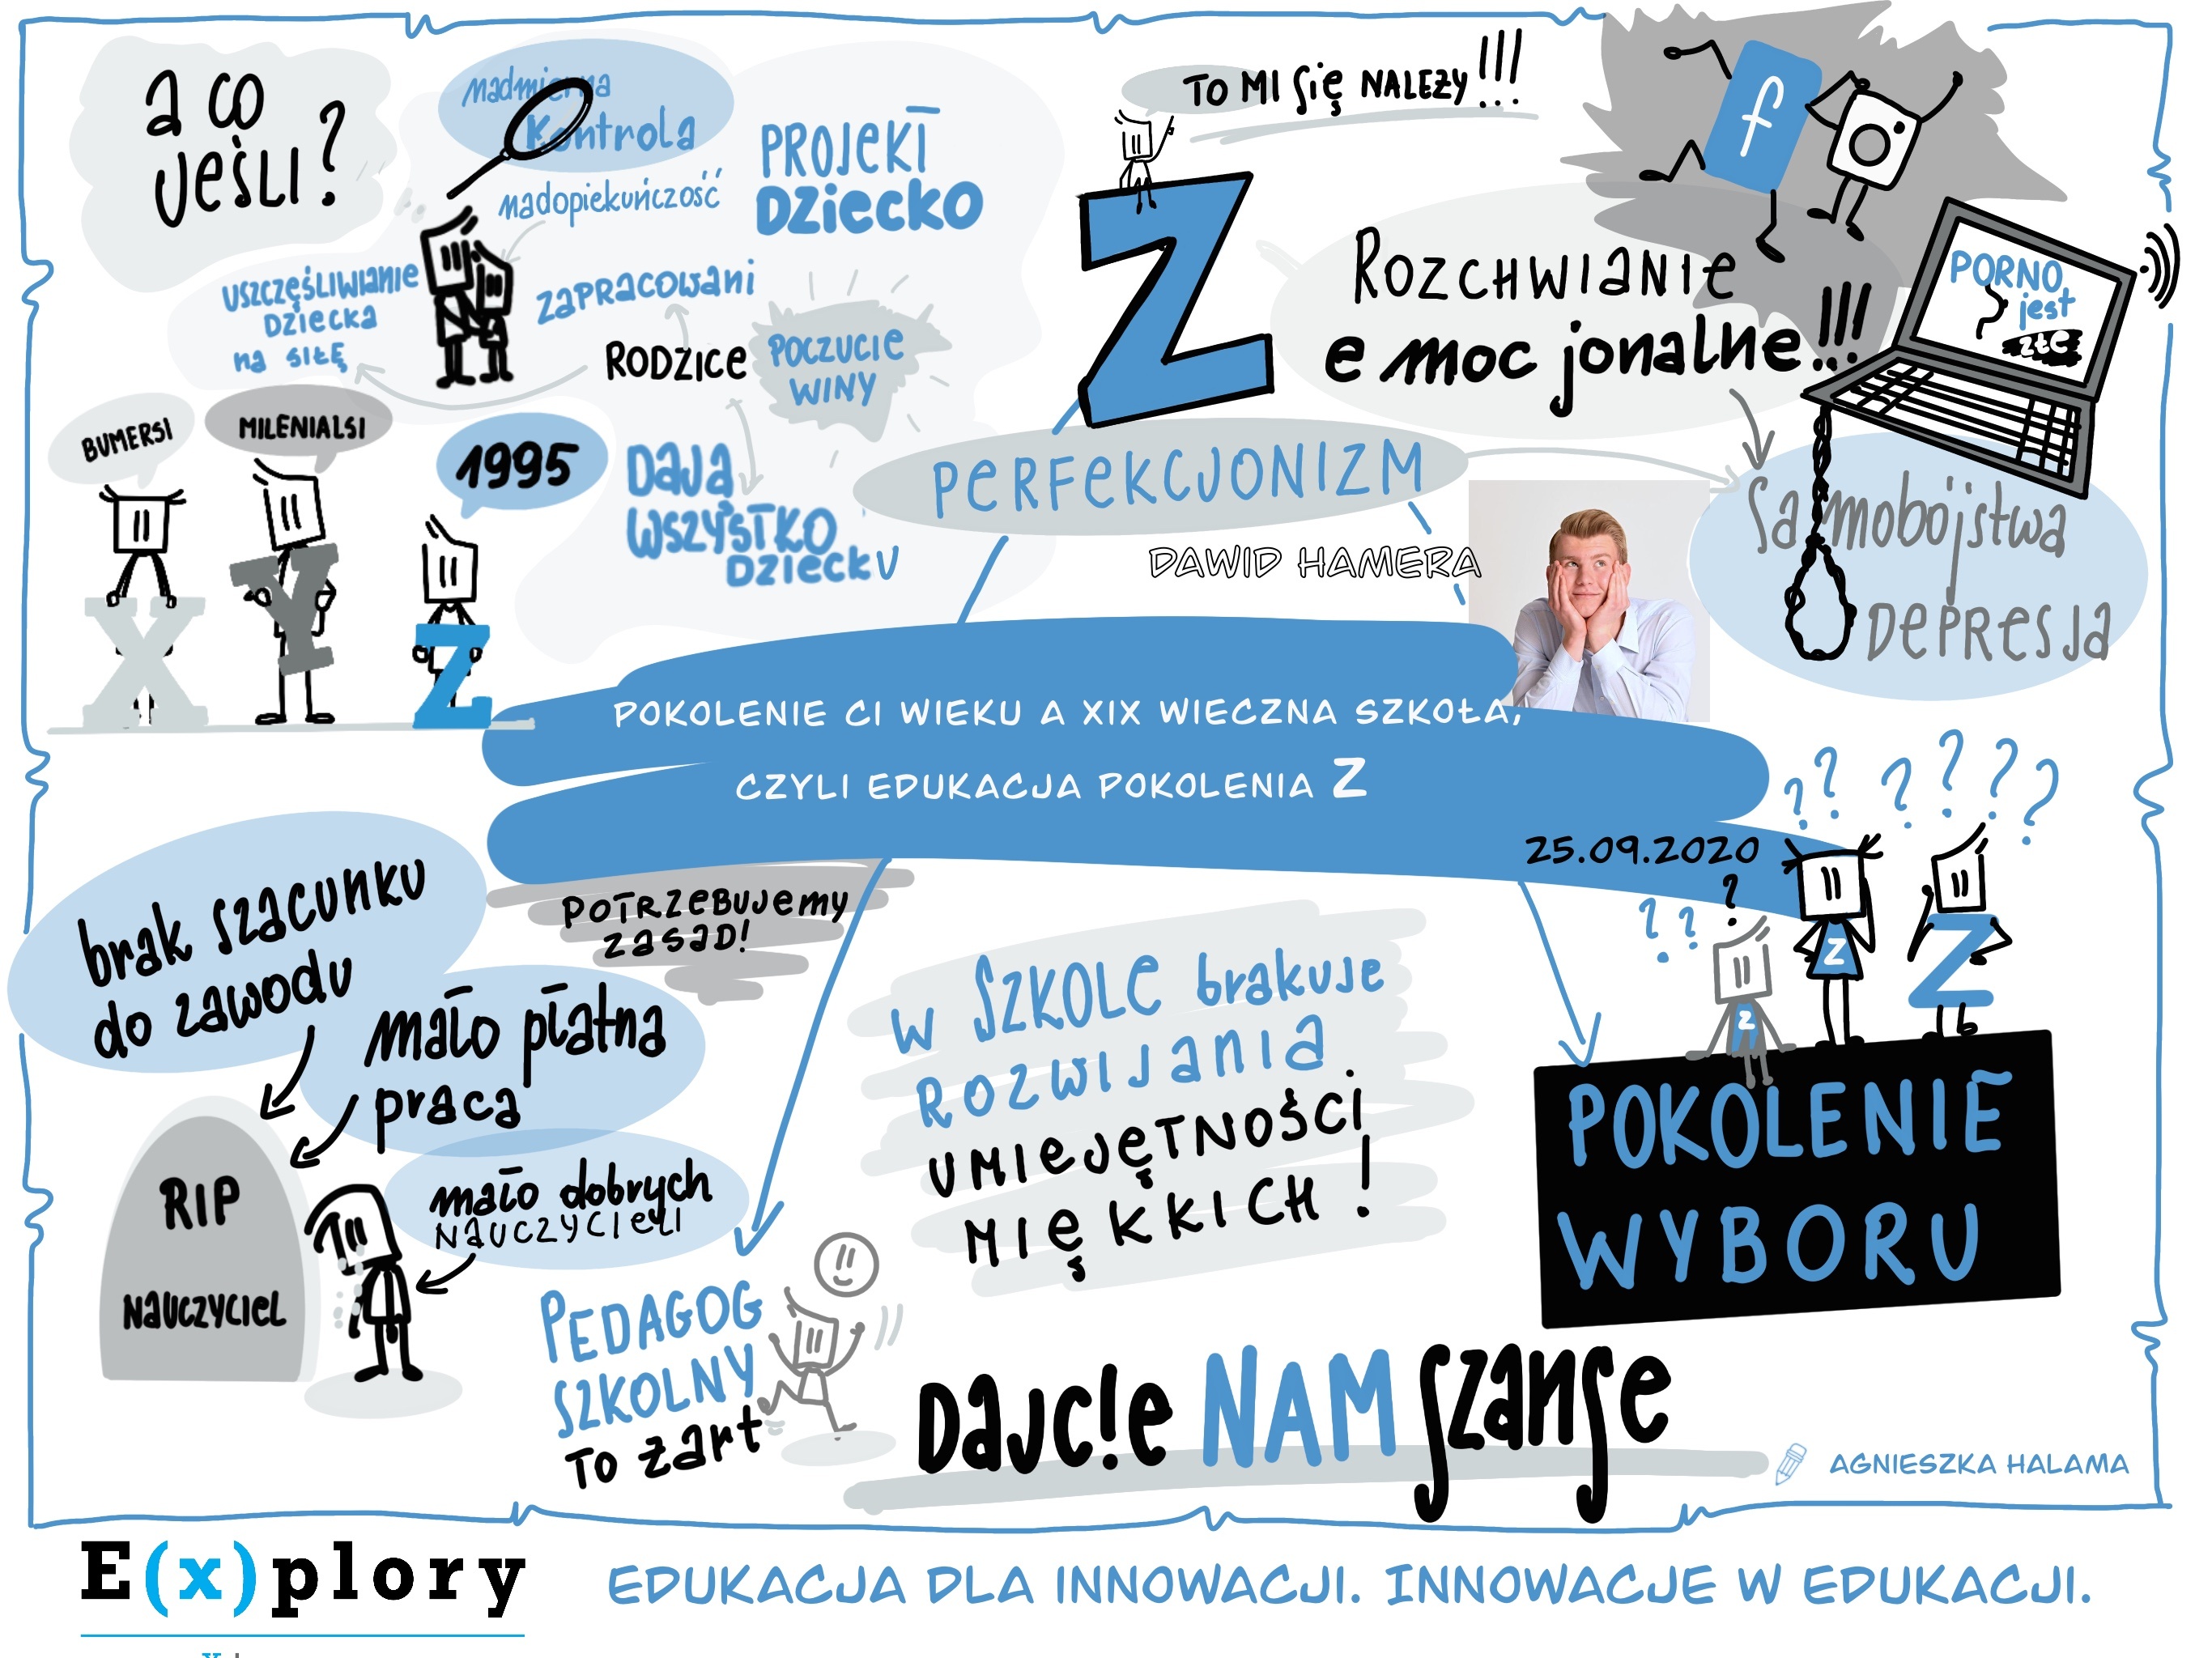 a co
jeśli?
nadmierna
Kontrola
nadopiekuńczość
PROJEKT
DZIECKO
USZCZĘŚLIWIANIE
DZIECKA
na SIŁĘ
ZAPRACOWANI
RODZICE
POCZUCIE
WINY
DAJĄ
WSZYSTKO
DZIECKU
BUMERSI
MILENIALSI
1995
X
Y
Z
TO MI się NALEŻY!!!
Z
f
ROZCHWIANIE
emocjonalne!!!
PORNO
jest
złe
PERFEKCJONIZM
Samobójstwa
DEPRESJA
DAWID HAMERA
POKOLENIE CI WIEKU A XIX WIECZNA SZKOŁA,
CZYLI EDUKACJA POKOLENIA Z
25.09.2020
? ? ? ? ? ?
? ? ?
Z
Z
Z
POKOLENIE
WYBORU
brak szacunku
do zawodu
mało płatna
praca
mało dobrych
NAUCZYCIELI
RIP
NAUCZYCIEL
POTRZEBUJEMY
ZASAD!
W SZKOLE brakuje
ROZWIJANIA
UMIEJĘTNOŚCI
MIĘKKICH!
PEDAGOG
SZKOLNY
TO żart
DAJC!E NAM SZANSE
AGNIESZKA HALAMA
E(x)plory
EDUKACJA DLA INNOWACJI. INNOWACJE W EDUKACJI.